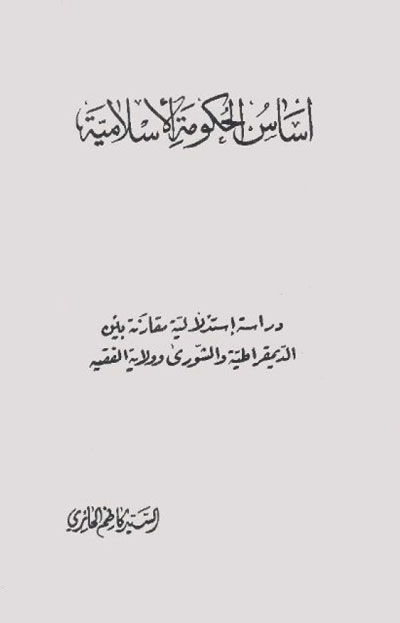 أساسُ الحُكومَةِ الأسْلاميّة
دراسة إستدْلاليّة مقارَنة بيْن
الدّيمقراطيّة والشّورىٰ وولاية الفقيه
السّيد كاظم الحائري